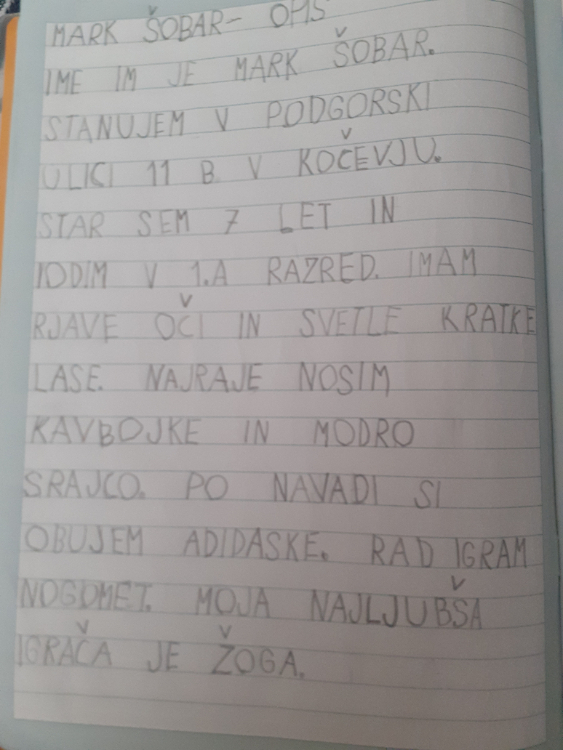 MARK ŠOBAR- OPIS
IME IM JE MARK ŠOBAR.
STANUJEM V PODGORSKI
ULICI 11 B V KOČEVJU.
STAR SEM 7 LET IN
HODIM V 1.A RAZRED. IMAM
RJAVE OČI IN SVETLE KRATKE
LASE. NAJRAJE NOSIM
KAVBOJKE IN MODRO
SRAJCO. PO NAVADI SI
OBUJEM ADIDASKE. RAD IGRAM
NOGOMET. MOJA NAJLJUBŠA
IGRAČA JE ŽOGA.